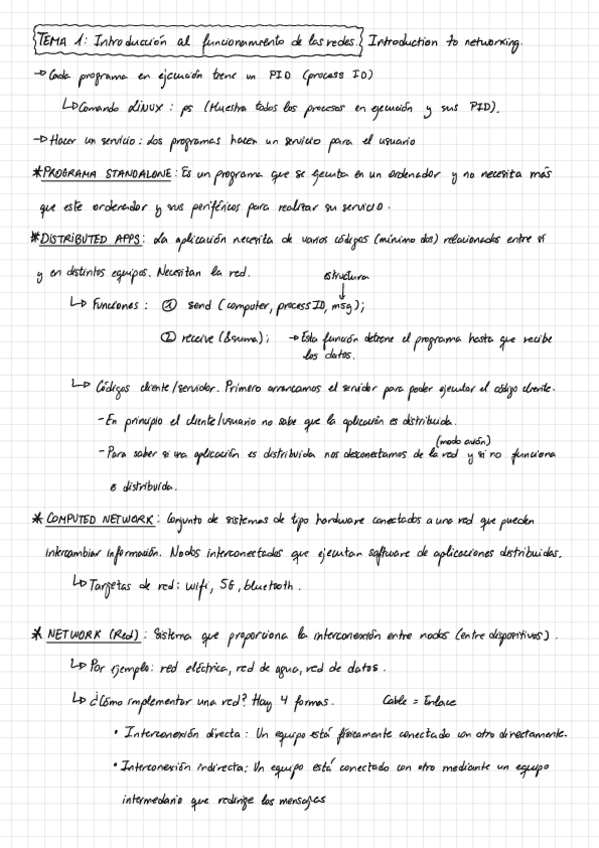 TEMA 1: Introducción al funcionamiento de las redes. Introduction to networking.
→ Cada programa en ejecución tiene un PID (process ID)
↳ Comando LINUX : ps (Muestra todos los procesos en ejecución y sus PID).
→ Hacer un servicio : Los programas hacen un servicio para el usuario
* PROGRAMA STANDALONE : Es un programa que se ejecuta en un ordenador y no necesita más
que este ordenador y sus periféricos para realizar su servicio.
* DISTRIBUTED APPS : La aplicación necesita de varios códigos (mínimo dos) relacionados entre sí
y en distintos equipos. Necesitan la red.
estructura
↓
↳ Funciones : ① send (computer, process ID, msg);
② receive (&suma); → Esta función detiene el programa hasta que recibe
los datos.
↳ Códigos cliente/servidor. Primero arrancamos el servidor para poder ejecutar el código cliente.
- En principio el cliente/usuario no sabe que la aplicación es distribuida.
(modo avión)
- Para saber si una aplicación es distribuida nos desconectamos de la red y si no funciona
es distribuida.
* COMPUTED NETWORK : Conjunto de sistemas de tipo hardware conectados a una red que pueden
intercambiar información. Nodos interconectados que ejecutan software de aplicaciones distribuidas.
↳ Tarjetas de red : wifi, 5G, bluetooth.
* NETWORK (Red) : Sistema que proporciona la interconexión entre nodos (entre dispositivos).
↳ Por ejemplo : red eléctrica, red de agua, red de datos.
↳ ¿Cómo implementar una red? Hay 4 formas. Cable = Enlace
• Interconexión directa : Un equipo está físicamente conectado con otro directamente.
• Interconexión indirecta : Un equipo está conectado con otro mediante un equipo
intermediario que redirige los mensajes